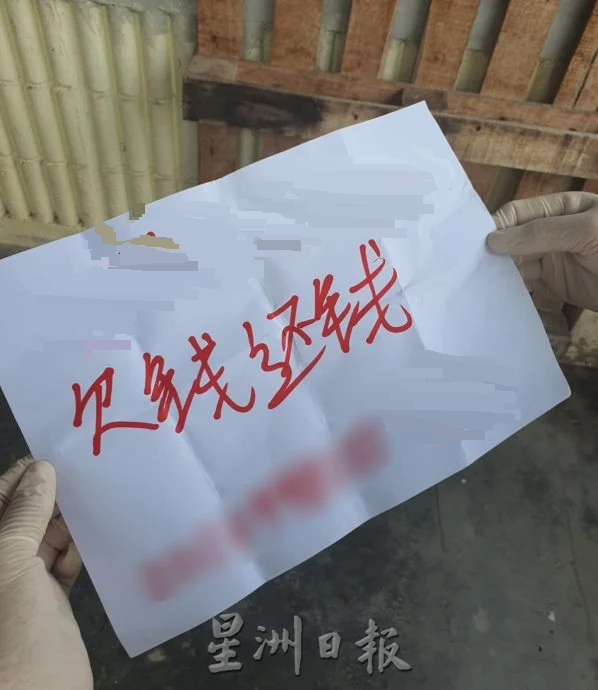 欠钱还钱
星洲日報